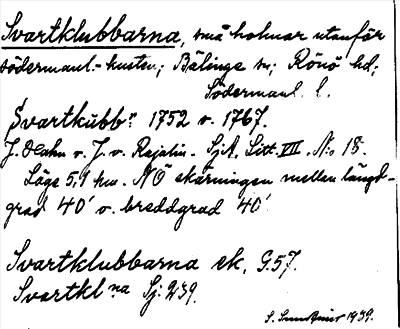 Svartklubbarna, små holmar utanför
södermanl.-kusten; Bälinge sn; Rönö hd;
Södermanl. l.
Svartkubbn 1752 o. 1767.
J. Hahn o. J. v. Rajalin. SjA, Litt. VIII. N:o 18.
Läge 5,9 km. NO skärningen mellan längd-
grad 40′ o. breddgrad 40′
Svartklubbarna ek. G.57.
Svartklna Sj: 239.
1939.